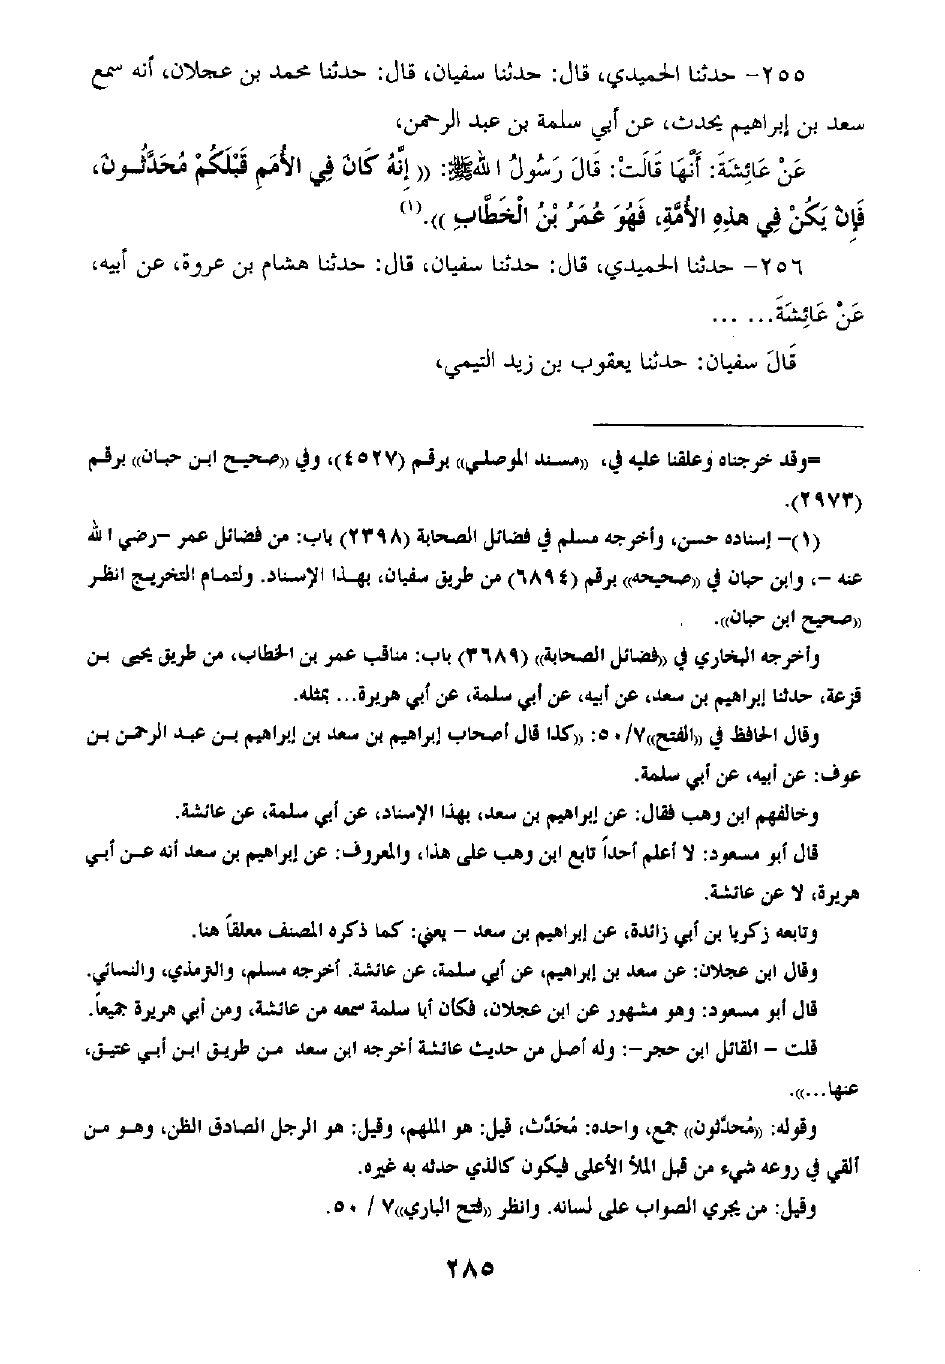 ٢٥٥- حدثنا الحميدي، قال: حدثنا سفيان، قال: حدثنا محمد بن عجلان، أنه سمع
سعد بن إبراهيم يحدث، عن أبي سلمة بن عبد الرحمن،
عَنْ عَائِشَةَ: أَنَّهَا قَالَتْ: قَالَ رَسُولُ اللهﷺ: (( إِنَّهُ كَانَ فِي الأُمَمِ قَبْلَكُمْ مُحَدَّثُونَ،
فَإِنْ يَكُنْ فِي هذِهِ الأُمَّةِ، فَهُوَ عُمَرُ بْنُ الْخَطَّابِ )).(١)
٢٥٦- حدثنا الحميدي، قال: حدثنا سفيان، قال: حدثنا هشام بن عروة، عن أبيه،
عَنْ عَائِشَةَ... ...
قَالَ سفيان: حدثنا يعقوب بن زيد التيمي،
=وقد خرجناه وعلقنا عليه في، ((مسند الموصلي)) برقم (٤٥٢٧)، وفي ((صحيح ابن حبان)) برقم
(٢٩٧٣).
(١)- إسناده حسن، وأخرجه مسلم في فضائل الصحابة (٢٣٩٨) باب: من فضائل عمر -رضي الله
عنه -، وابن حبان في ((صحيحه)) برقم (٦٨٩٤) من طريق سفيان، بهذا الإسناد. ولتمام التخريج انظر
((صحيح ابن حبان)).
وأخرجه البخاري في ((فضائل الصحابة)) (٣٦٨٩) باب: مناقب عمر بن الخطاب، من طريق يحيى بن
قزعة، حدثنا إبراهيم بن سعد، عن أبيه، عن أبي سلمة، عن أبي هريرة... بمثله.
وقال الحافظ في ((الفتح))٥٠/٧: ((كذا قال أصحاب إبراهيم بن سعد بن إبراهيم بن عبد الرحمن بن
عوف: عن أبيه، عن أبي سلمة.
وخالفهم ابن وهب فقال: عن إبراهيم بن سعد، بهذا الإسناد، عن أبي سلمة، عن عائشة.
قال أبو مسعود: لا أعلم أحداً تابع ابن وهب على هذا، والمعروف: عن إبراهيم بن سعد أنه عن أبي
هريرة، لا عن عائشة.
وتابعه زكريا بن أبي زائدة، عن إبراهيم بن سعد - يعني: كما ذكره المصنف معلقاً هنا.
وقال ابن عجلان: عن سعد بن إبراهيم، عن أبي سلمة، عن عائشة. أخرجه مسلم، والترمذي، والنسائي.
قال أبو مسعود: وهو مشهور عن ابن عجلان، فكأن أبا سلمة سمعه من عائشة، ومن أبي هريرة جميعاً.
قلت - القائل ابن حجر-: وله أصل من حديث عائشة أخرجه ابن سعد من طريق ابن أبي عتيق،
عنها...)).
وقوله: ((مُحدَّثون)) جمع، واحده: مُحَدَّث، قيل: هو الملهم، وقيل: هو الرجل الصادق الظن، وهو من
ألقي في روعه شيء من قبل الملأ الأعلى فيكون كالذي حدثه به غيره.
وقيل: من يجري الصواب على لسانه. وانظر ((فتح الباري))٧ / ٥٠.
٢٨٥